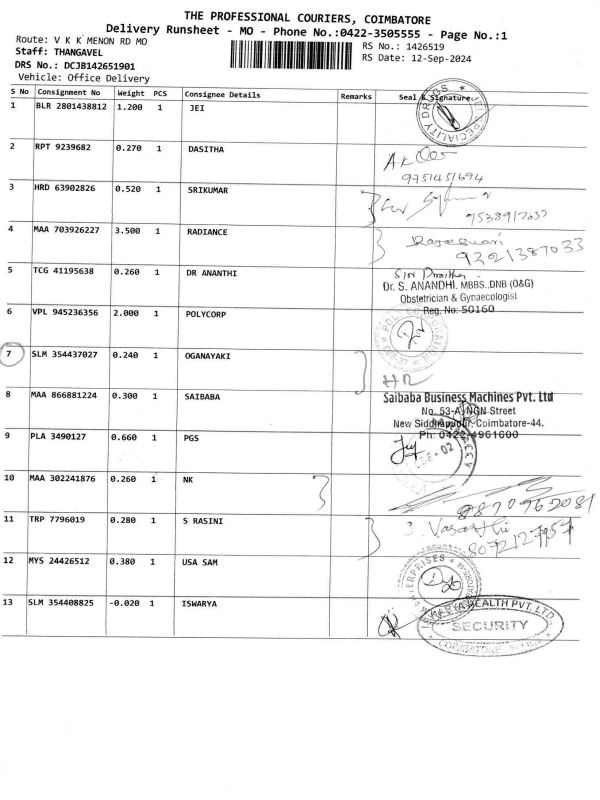 THE PROFESSIONAL COURIERS, COIMBATORE
Delivery Runsheet - MO - Phone No.:0422-3505555 - Page No.:1
Route: V K K MENON RD MO
RS No.: 1426519
Staff: THANGAVEL
RS Date: 12-Sep-2024
DRS No.: DCJB142651901
Vehicle: Office Delivery
S No Consignment No Weight PCS Consignee Details Remarks Seal & Signature
1 BLR 2801438812 1.200 1 JEI
JEI SPECIALITY DRUGS
2 RPT 9239682 0.270 1 DASITHA
9751451694
3 HRD 63902826 0.520 1 SRIKUMAR
4 MAA 703926227 3.500 1 RADIANCE
Rajeswari
9321387033
5 TCG 41195638 0.260 1 DR ANANTHI
Dr. S. ANANDHI, MBBS.,DNB (O&G)
Obstetrician & Gynaecologist
Reg. No: 50160
6 VPL 945236356 2.000 1 POLYCORP
7 SLM 354437027 0.240 1 OGANAYAKI
HR
8 MAA 866881224 0.300 1 SAIBABA
Saibaba Business Machines Pvt. Ltd
No. 53-A, NGN Street
New Siddhapudur, Coimbatore-44.
Ph: 0422-4961600
9 PLA 3490127 0.660 1 PGS
10 MAA 302241876 0.260 1 NK
8870762081
11 TRP 7796019 0.280 1 S RASINI
Vasanthi
8072127957
12 MYS 24426512 0.380 1 USA SAM
ENTERPRISES
13 SLM 354408825 -0.020 1 ISWARYA
HEALTH PVT. LTD.
SECURITY